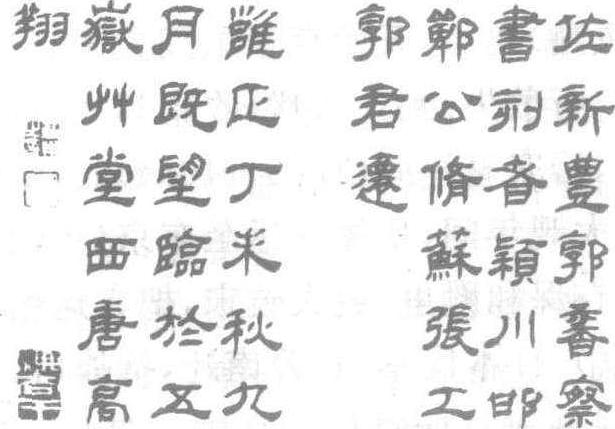 佐新豊郭香察
書刻者潁川邯
鄲公脩蘇張工
郭君遷
雝正丁未秋九
月既望臨於五
嶽艸堂西唐高
翔